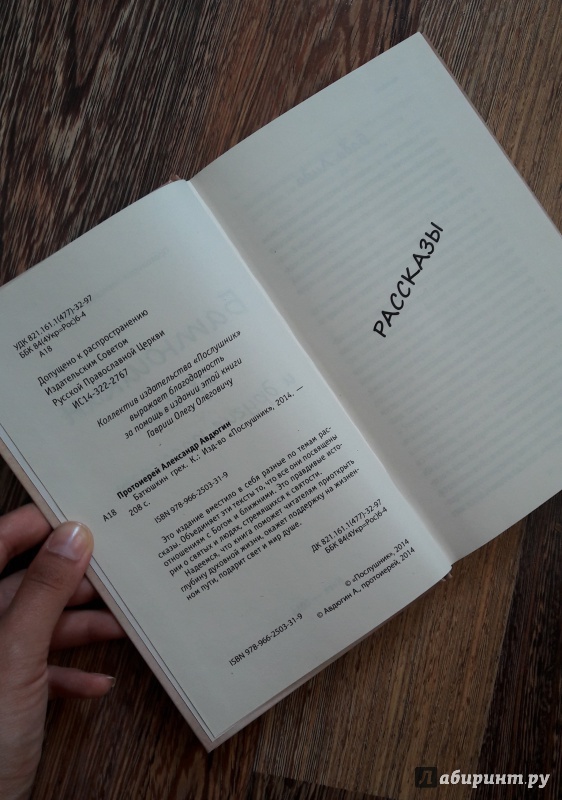 УДК 821.161.1(477)-32-97
ББК 84(4Укр=Рос)6-4
А18
Допущено к распространению
Издательским Советом
Русской Православной Церкви
ИС14-322-2767
Коллектив издательства «Послушник»
выражает благодарность
за помощь в издании этой книги
Гавриш Олегу Олеговичу
Протоиерей Александр Авдюгин
А18
Батюшкин грех. К.: Изд-во «Послушник», 2014. —
208 с.
ISBN 978-966-2503-31-9
Это издание вместило в себя разные по темам рас-
сказы. Объединяет эти тексты то, что все они посвящены
отношениям с Богом и ближними. Это правдивые исто-
рии о святых и людях, стремящихся к святости.
Надеемся, что книга поможет читателям приоткрыть
глубину духовной жизни, окажет поддержку на жизнен-
ном пути, подарит свет и мир душе.
ДК 821.161.1(477)-32-97
ББК 84(4Укр=Рос)6-4
ISBN 978-966-2503-31-9
© «Послушник», 2014
© Авдюгин А., протоиерей, 2014
РАССКАЗЫ
Лабиринт.ру